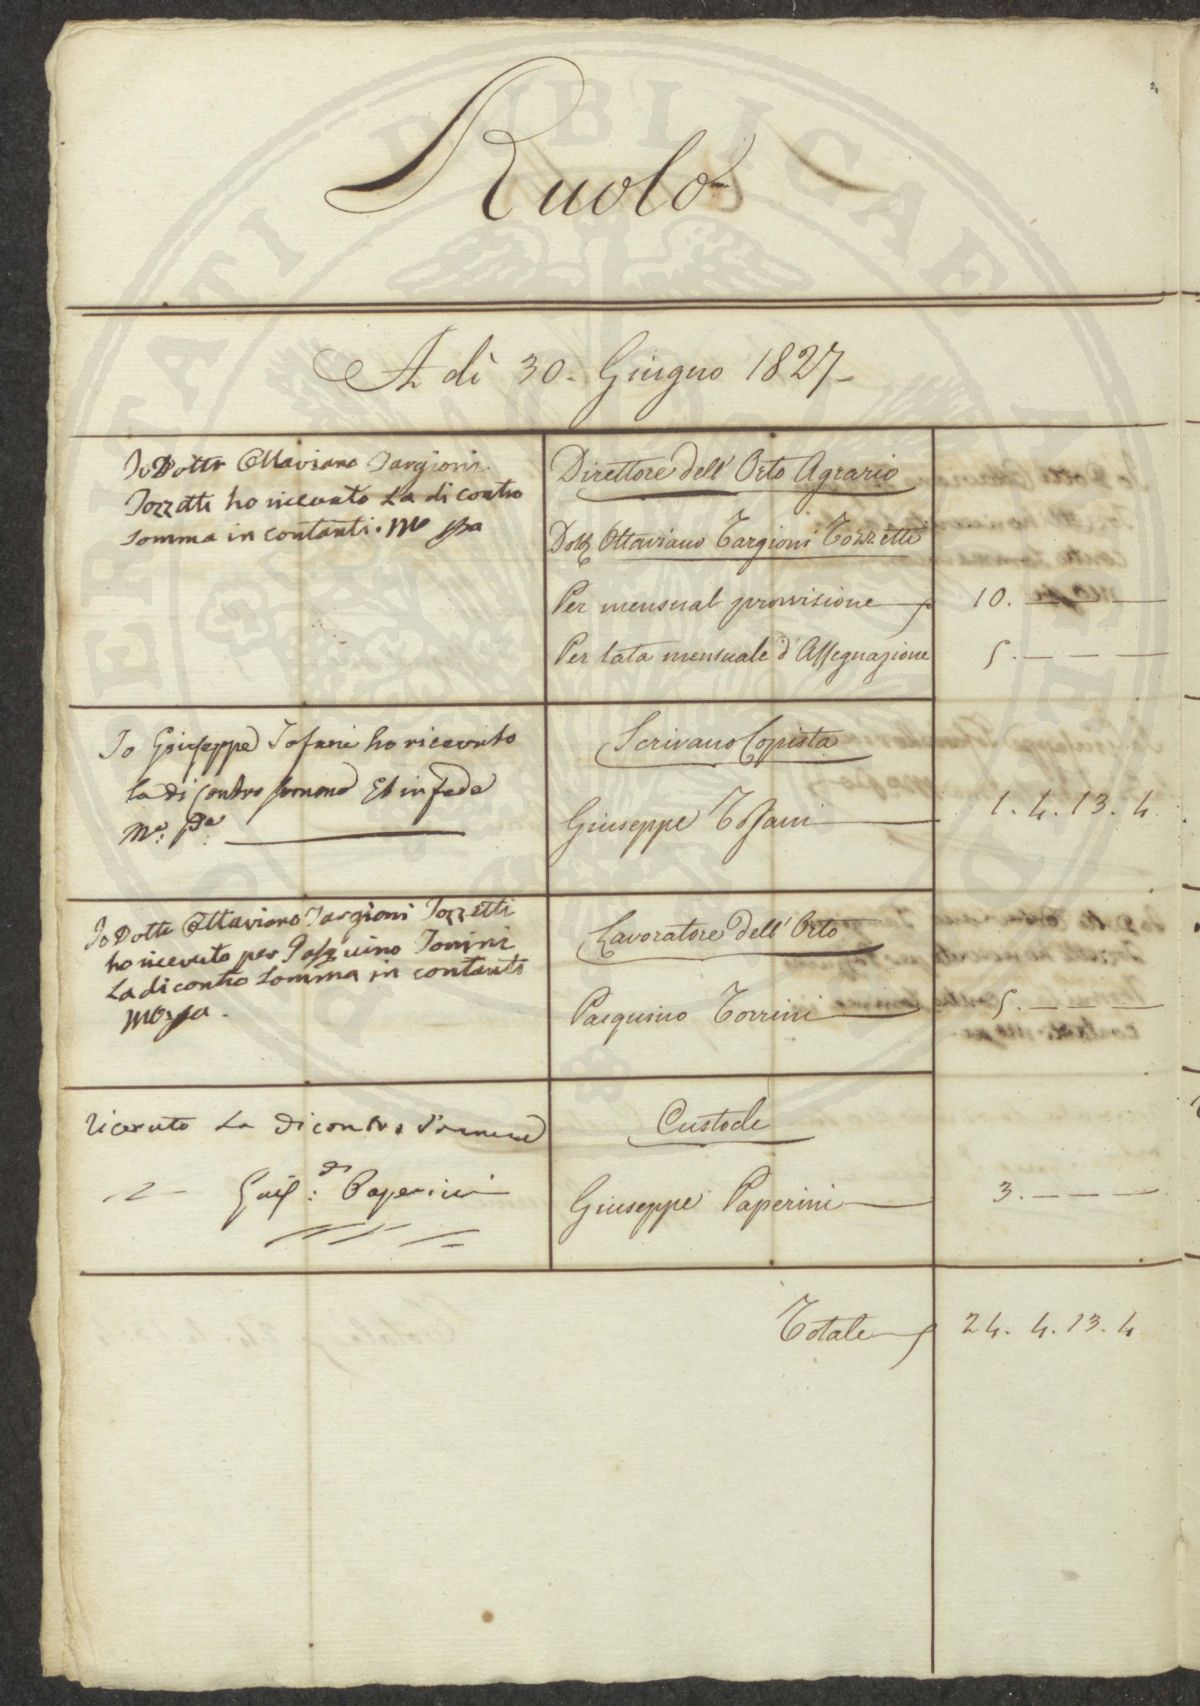 Ruolo
A dì 30. Giugno 1827.
Io Dottr Ottaviano Targioni
Tozzetti ho ricevuto La di contro
Somma in contanti. Mo ppa
Direttore dell' Orto Agrario
Dott Ottaviano Targioni Tozzetti
Per mensual provvisione 10. — — —
Per rata mensuale d'Assegnazione 5. — — —
Io Giuseppe Tofani ho ricevuto
la di contro somma Et in fede
Mo: ppa
Scrivano Copista
Giuseppe Tofani 1. 4. 13. 4
Io Dotte Ottaviano Targioni Tozzetti
ho ricevuto per Pasquino Torrini
La di contro Somma in contanti
Mo: ppa.
Lavoratore dell' Orto
Pasquino Torrini 5. — — —
ricevuto La di contro Somma
Paperini
Custode
Giuseppe Paperini 3. — — —
Totale 24. 4. 13. 4